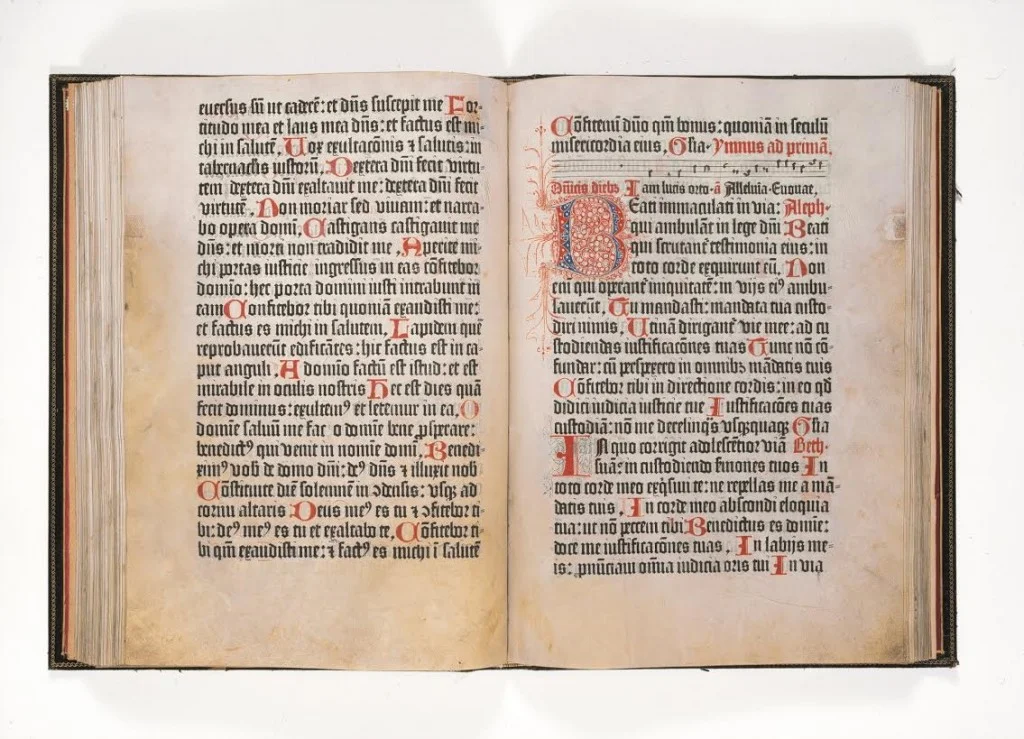 euersus sū ut caderē: et dn̄s suscepit me For-
titudo mea et laus mea dn̄s: et factus est mi-
chi in salutē. Vox exultacōnis & salutis: in
tabernacl'is iustorū. Dextera dn̄i fecit virtu-
tem dextera dn̄i exaltauit me: dextera dn̄i fecit
virtutē. Non moriar sed viuam: et narra-
bo opera domī. Castigans castigauit me
dn̄s: et morti non tradidit me. Aperite mi-
chi portas iusticie ingressus in eas cōfitebor
domīo: hec porta domini iusti intrabunt in
eam Confitebor tibi quoniam exaudisti me:
et factus es michi in salutem. Lapidem quē
reprobauerūt edificātes: hic factus est in ca-
put anguli. A domīo factū est istud: et est
mirabile in oculis nostris Hec est dies quā
fecit dominus: exultemꝰ et letemur in ea. O
domīe saluū me fac o domīe bene ꝓsperare:
benedictꝰ qui venit in nomīe domī. Benedi-
ximꝰ vob̄ de domo dn̄i: deꝰ dn̄s ⁊ illuxit nob̄
Cōstituite diē solennē in ꝯdensis: vsqꝫ ad
cornu altaris Deus meꝰ es tu ⁊ ꝯfitebor ti-
bi: deꝰ meꝰ es tu et exaltabo te. Cōfitebor ti-
bi qm̄ exaudisti me: ⁊ factꝰ es michi ī salutē
Cōfitemī dn̄o qm̄ bonus: quoniā in seculū
misericordia eius. Gl'ia. Ymnus ad primā.
Dn̄icis diebꝰ Iam lucis orto. ā Alleluia. Euouae.
BEati immaculati in via: Aleph
qui ambulāt in lege dn̄i Beati
qui scrutant̄ testimonia eius: in
toto corde exquirunt eū. Non
eni qui operant̄ iniquitatē: in vijs eiꝰ ambu-
lauerūt. Tu mandasti: mandata tua custo-
diri nimis. Utinā dirigant̄ vie mee: ad cu
stodiendas iustificacōnes tuas Tunc nō cō-
fundar: cū perspexero in omnibꝫ mādatis tuis
Cōfitebor tibi in directione cordis: in eo qd̄
didici iudicia iusticie tue Iustificacōes tuas
custodiā: nō me derelinq̄s vsqꝫquaqꝫ Gl'ia
IN quo corrigit adolescētior viā Beth
suā: in custodiendo s̄mones tuos In
toto corde meo exq̄siui te: ne repellas me a mā-
datis tuis. In corde meo abscondi eloquia
tua: ut nō peccem tibi Benedictus es domīe:
doce me iustificacōnes tuas. In labijs me-
is: ꝓnūciaui om̄ia iudicia oris tui In via